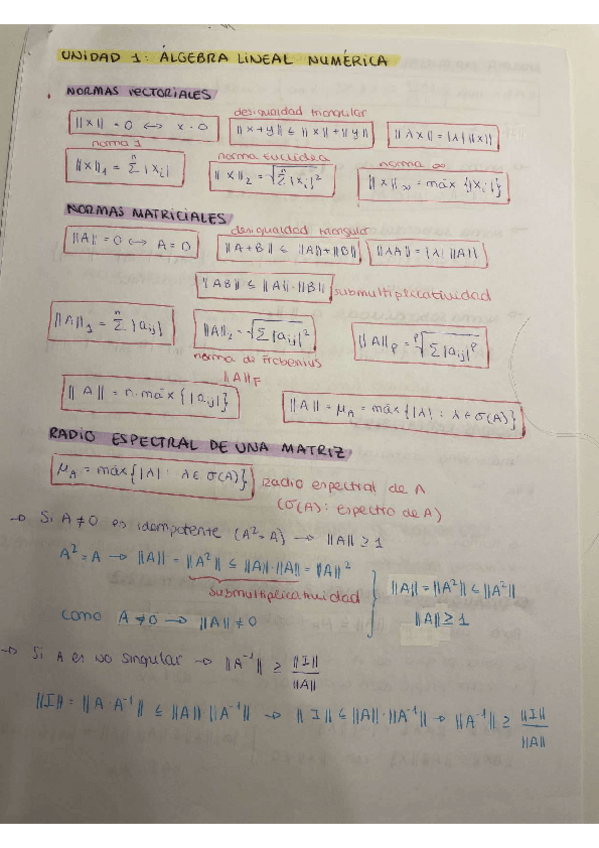 UNIDAD 1: ÁLGEBRA LINEAL NUMÉRICA
NORMAS VECTORIALES
desigualdad triangular
||x|| = 0 ⟷ x = 0 ||x+y|| ≤ ||x|| + ||y|| ||λx|| = |λ| ||x||
norma 1 norma Euclídea norma ∞
||x||₁ = Σⁿ |xᵢ| ||x||₂ = √(Σⁿ |xᵢ|²) ||x||∞ = máx {|xᵢ|}
NORMAS MATRICIALES
desigualdad triangular
||A|| = 0 ⟷ A = 0 ||A+B|| ≤ ||A|| + ||B|| ||λA|| = |λ| ||A||
||AB|| ≤ ||A|| · ||B|| submultiplicatividad
||A||₁ = Σⁿ |aᵢⱼ| ||A||₂ = √(Σ |aᵢⱼ|²) ||A||ₚ = ᵖ√(Σ |aᵢⱼ|ᵖ)
norma de Frobenius
||A||_F
||A|| = n · máx {|aᵢⱼ|} ||A|| = μ_A = máx {|λ| : λ ∈ σ(A)}
RADIO ESPECTRAL DE UNA MATRIZ
μ_A = máx {|λ| : λ ∈ σ(A)} Radio espectral de A
(σ(A): espectro de A)
→ Si A ≠ 0 es idempotente (A² = A) → ||A|| ≥ 1
A² = A → ||A|| = ||A²|| ≤ ||A|| · ||A|| = ||A||² ||A|| = ||A²|| ≤ ||A²||
submultiplicatividad
como A ≠ 0 → ||A|| ≠ 0 ||A|| ≥ 1
→ Si A es no singular → ||A⁻¹|| ≥ ||I|| / ||A||
||I|| = ||A · A⁻¹|| ≤ ||A|| · ||A⁻¹|| → ||I|| ≤ ||A|| · ||A⁻¹|| → ||A⁻¹|| ≥ ||I|| / ||A||